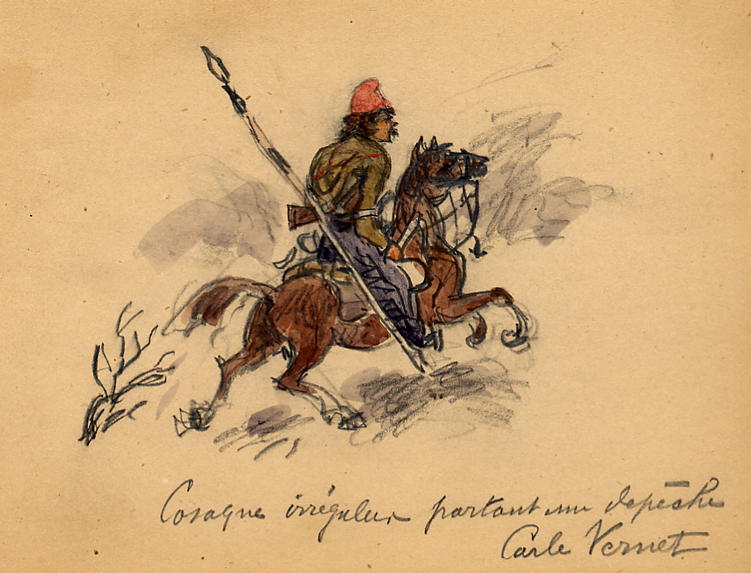 Cosaque irrégulier partant une depèche
Carle Vernet